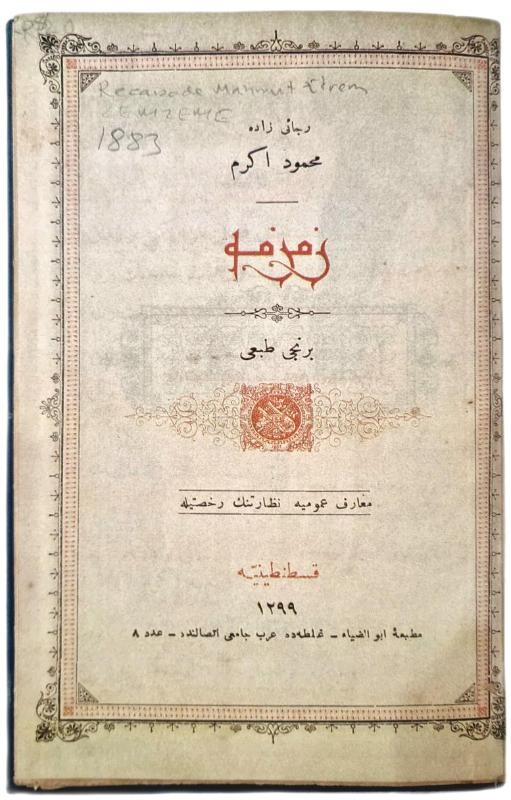 Recaizade Mahmut Ekrem
ZEMZEME
1883
رجائى زاده
محمود اكرم
زمزمه
برنجى طبعى
معارف عموميه نظارتنك رخصتيله
قسطنطينيّه
١٢٩٩
مطبعهٔ ابوالضياء – غلطه‌ده عرب جامعى اتصالنده – عدد ٨